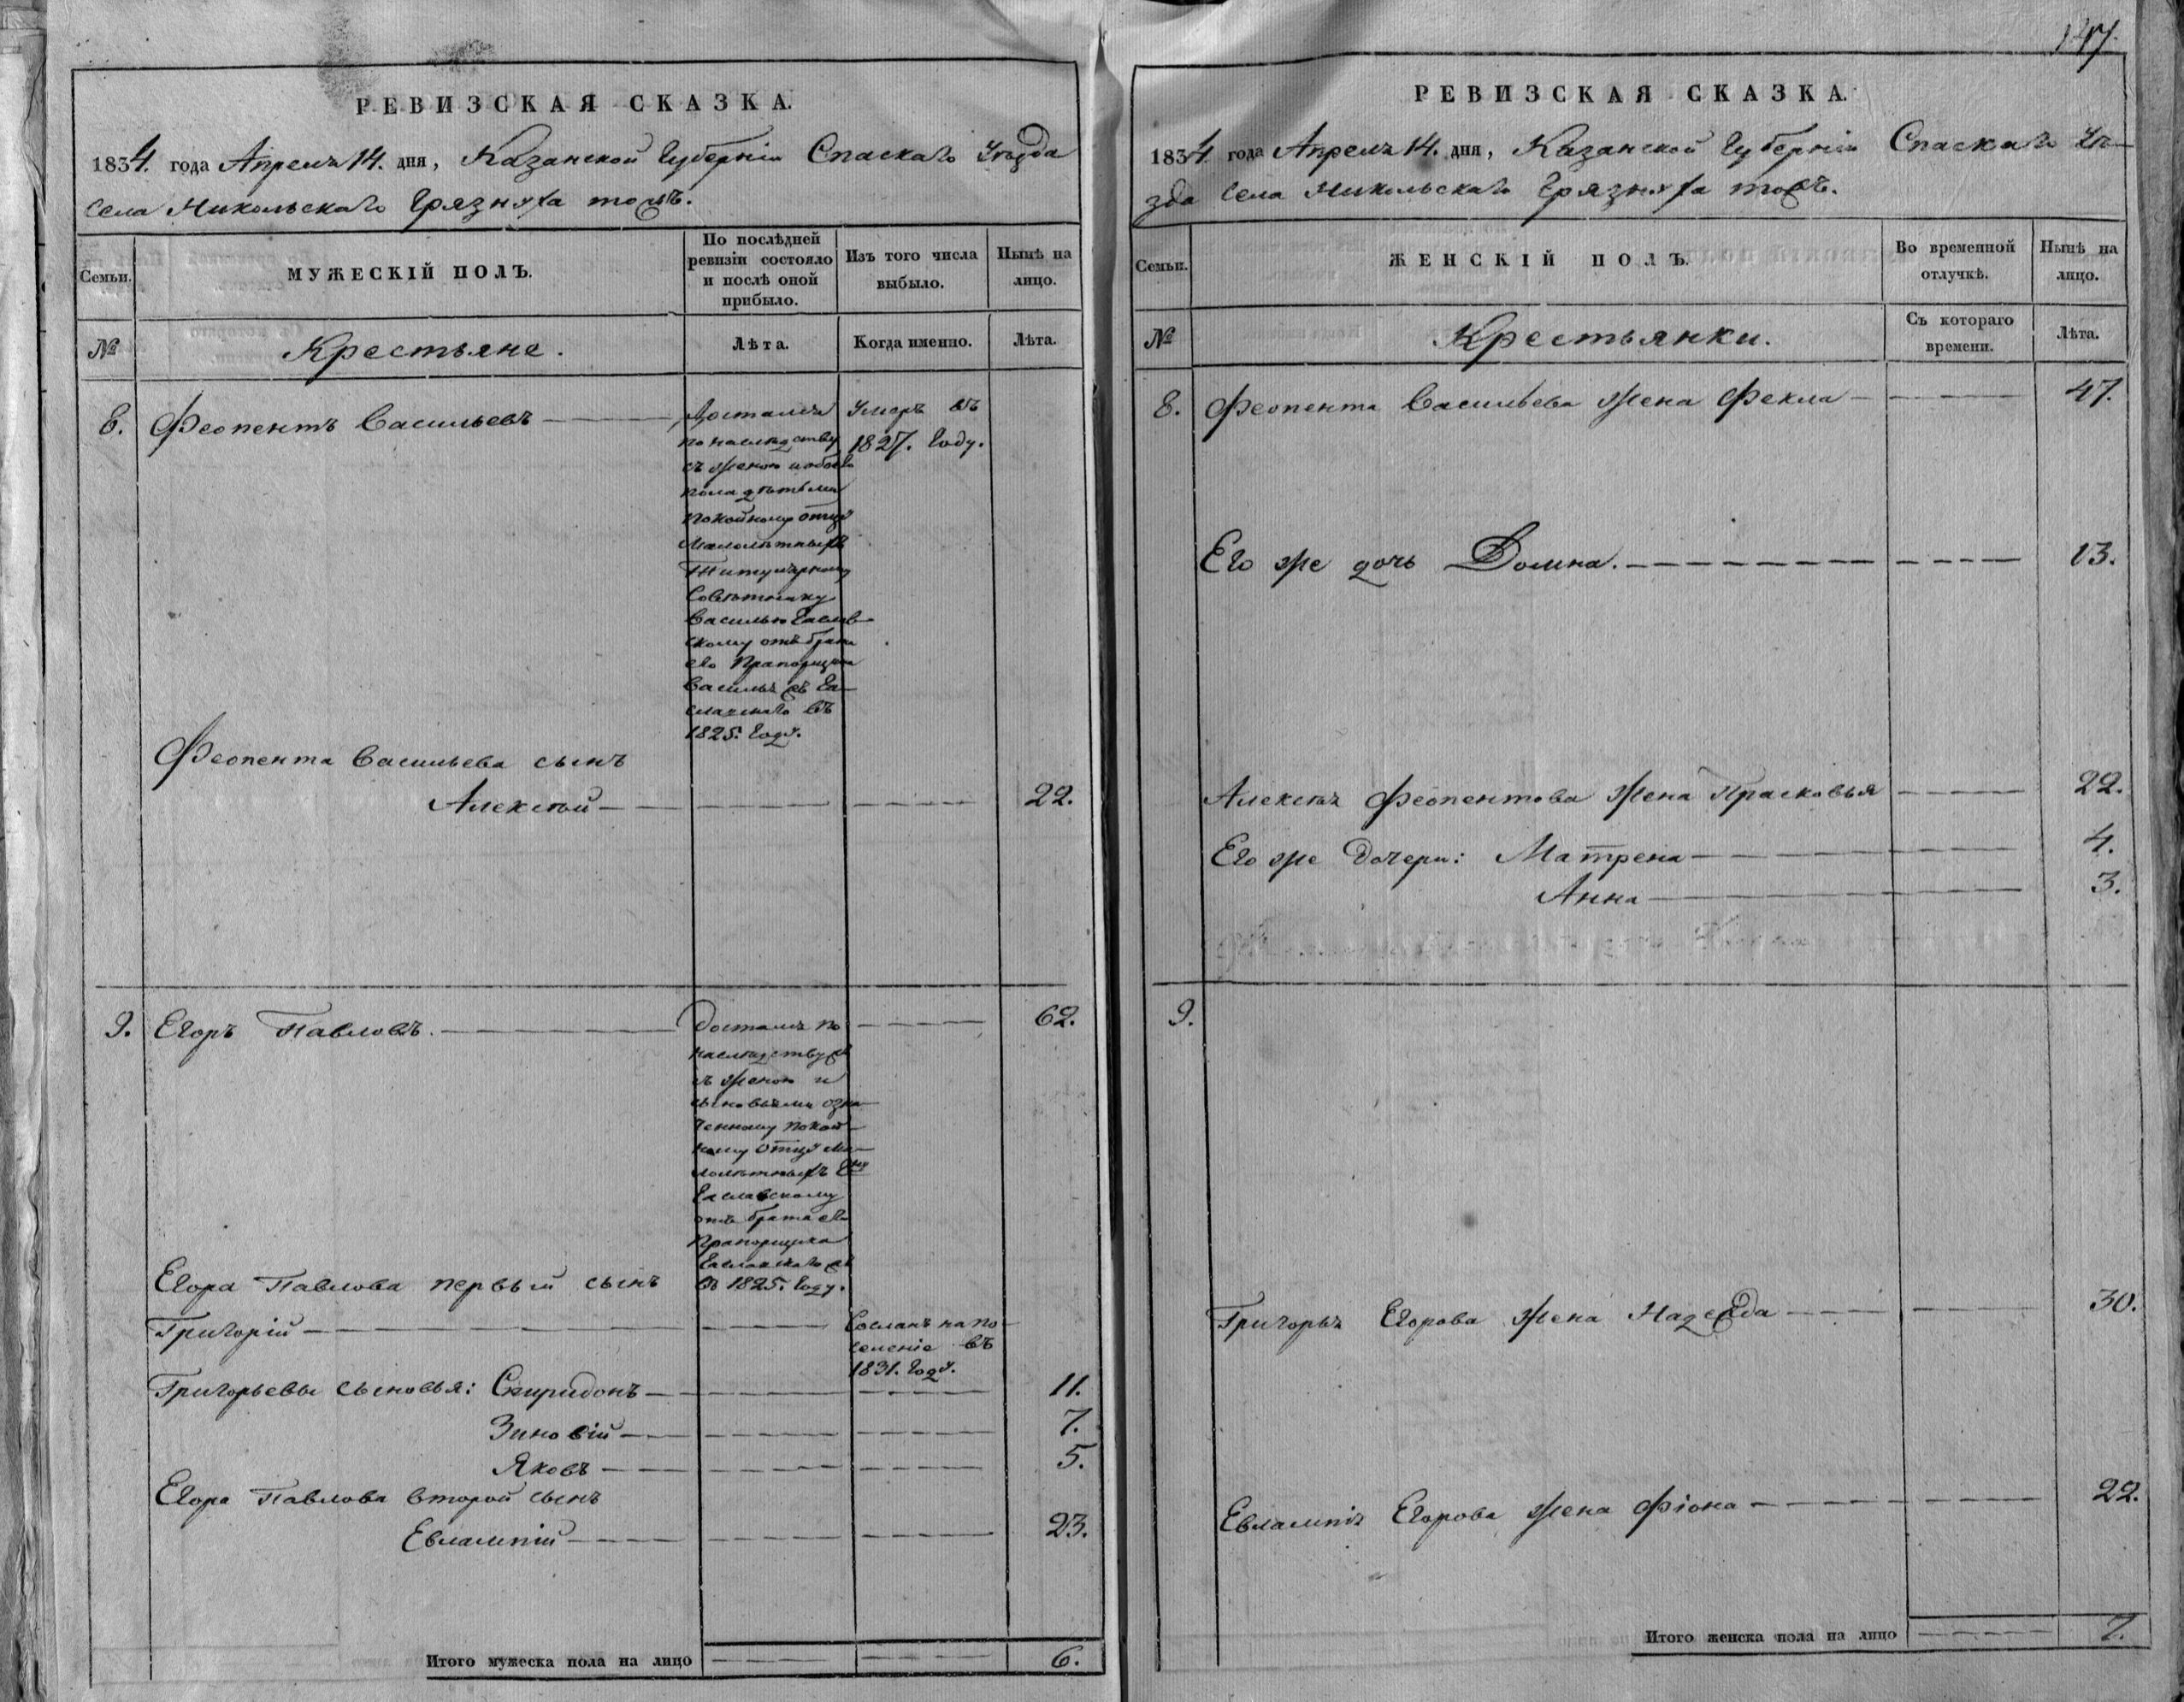 РЕВИЗСКАЯ СКАЗКА.
1834. года Апреля 14. дня, Казанской Губерніи Спаскаго Уѣзда
села Никольскаго Грязнуха тожъ.
Семьи.
МУЖЕСКІЙ ПОЛЪ.
По послѣдней
ревизіи состояло
и послѣ оной
прибыло.
Изъ того числа
выбыло.
Нынѣ на
лицо.
№
Крестьяне.
Лѣта.
Когда именно.
Лѣта.
8. Феопентъ Васильевъ
Достался
по наслѣдству
съ женою и обоего
пола дѣтьми
покойному отцу
Малолѣтныхъ
Титулярному
Совѣтнику
Василью
скому отъ брата
его Прапорщика
Василья
въ
1825. году.
Умеръ въ
1827. году.
Феопента Васильева сынъ
Алексѣй 22.
9. Егоръ Павловъ. 62.
Достался по
наслѣдству
съ женою и
сыновьями озна
ченному покой
ному отцу Ма
лолѣтныхъ
отъ брата его
Прапорщика
въ 1825. году.
Егора Павлова первый сынъ
Григорій
Сосланъ на по
селеніе въ
1831. году.
Григорьевы сыновья: Спиридонъ 11.
Зиновій 7.
Яковъ 5.
Егора Павлова второй сынъ
Евлампій 23.
Итого мужеска пола на лицо 6.
147.
РЕВИЗСКАЯ СКАЗКА.
1834. года Апреля 14. дня, Казанской Губерніи Спаскаго Уѣ
зда села Никольскаго Грязнуха тожъ.
Семьи.
ЖЕНСКІЙ ПОЛЪ.
Во временной
отлучкѣ.
Нынѣ на
лицо.
№
Крестьянки.
Съ котораго
времени.
Лѣта.
8. Феопента Васильева жена Фекла 47.
Его же дочь Домна. 13.
Алексѣя Феопентова жена Прасковья 22.
Его же дочери: Матрена 4.
Анна 3.
9.
Григорья Егорова жена Надежда 30.
Евлампія Егорова жена Фіона 22.
Итого женска пола на лицо 7.